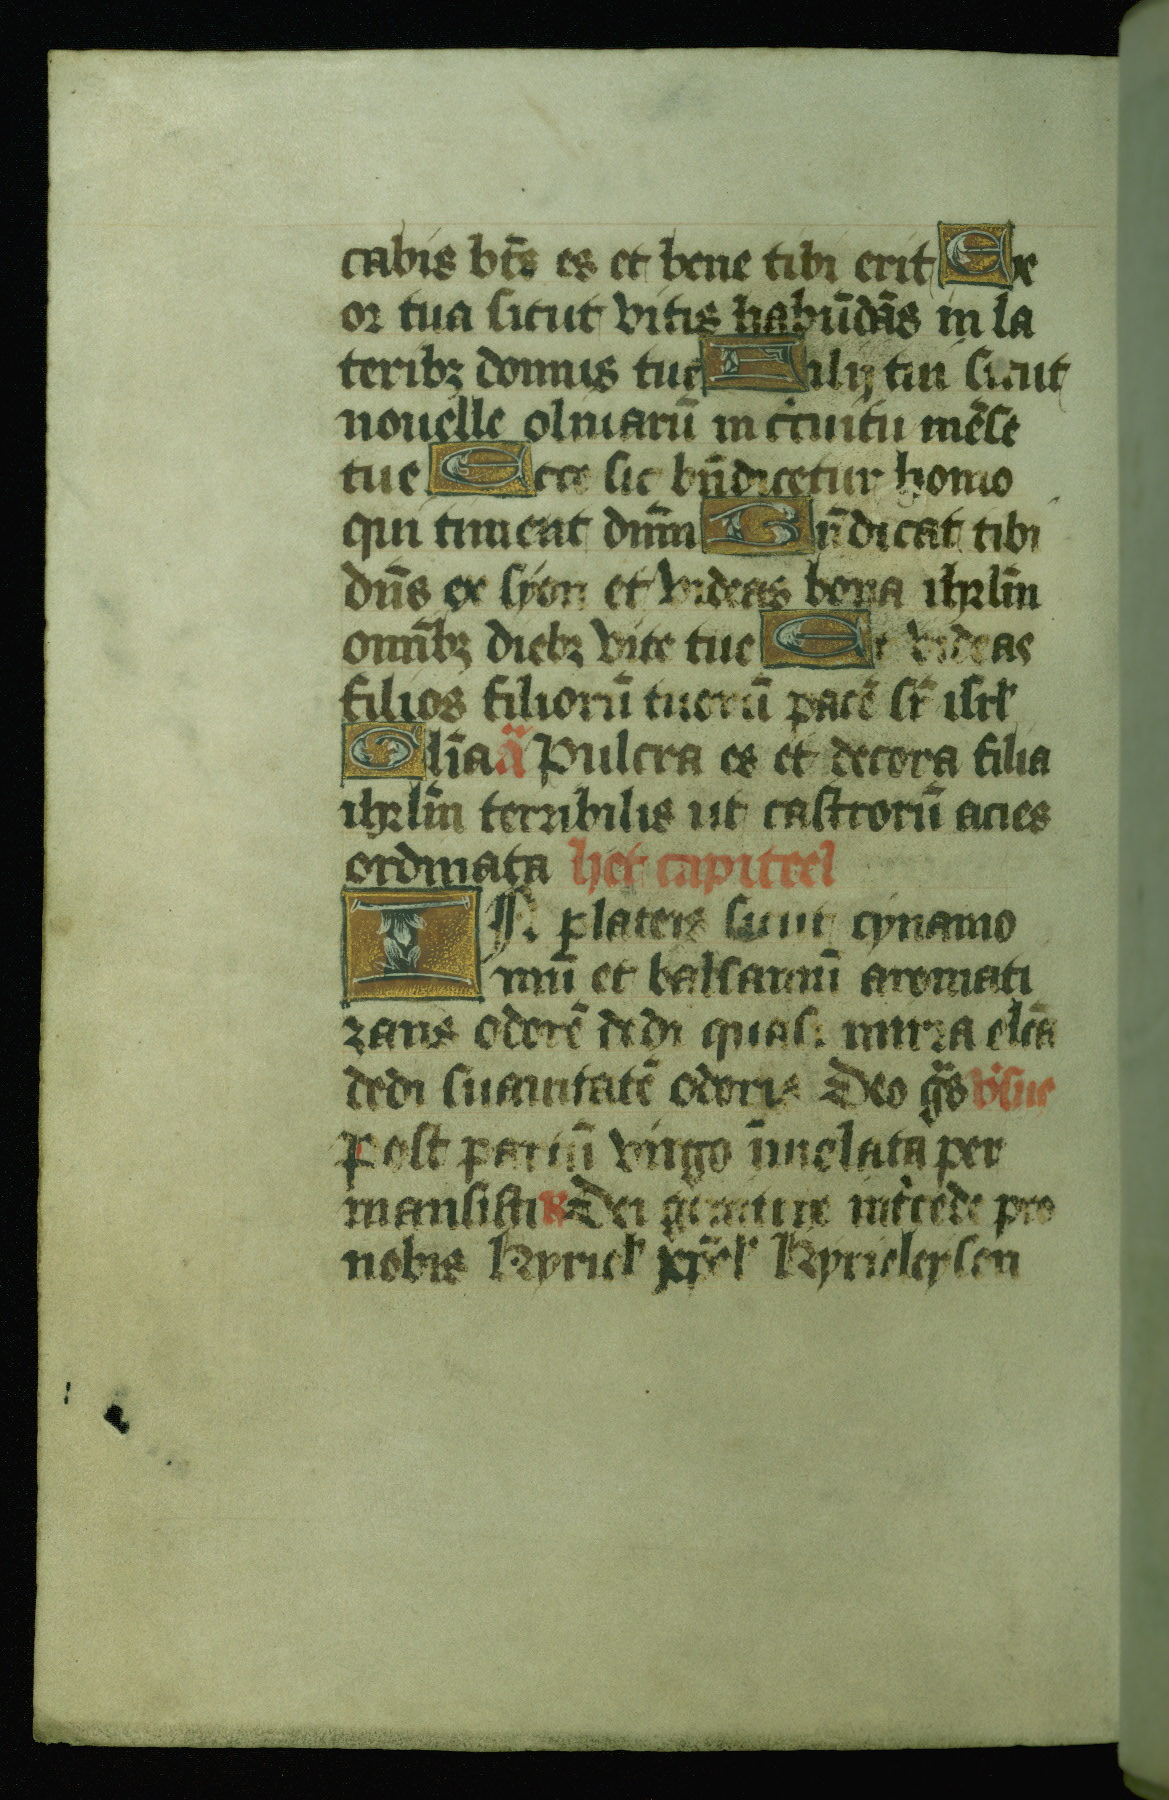 cabis bt̄s es et bene tibi erit Ex
or tua sicut vitis habūdās in la
teribꝫ domus tue Filij tui sicut
nouelle oliuarū in c̓cuitu mēse
tue Ecce sic bn̄dicetur homo
qui timent dūm Bn̄dicat tibi
dn̄s ex syon et videas bona ihrl̄m
omībꝫ diebꝫ vite tue Et videas
filios filiorū tuorū pacē sr̄ isrl̓
Gl̄ia ā Pulcra es et decora filia
ihrl̄m terribilis ut castrorū acies
ordinata het capiteel
IN plateis sicut cynamo
mū et balsamū aromati
zans odorē dedi quasi mirra elcā
dedi suauitatē odoris Deo gr̄s v̓sue
Post partū virgo īuiolata per
mansisti R Dei genitrix int̓cede pro
nobis Kyriel̓ xp̄el̓ Kyrieleyson